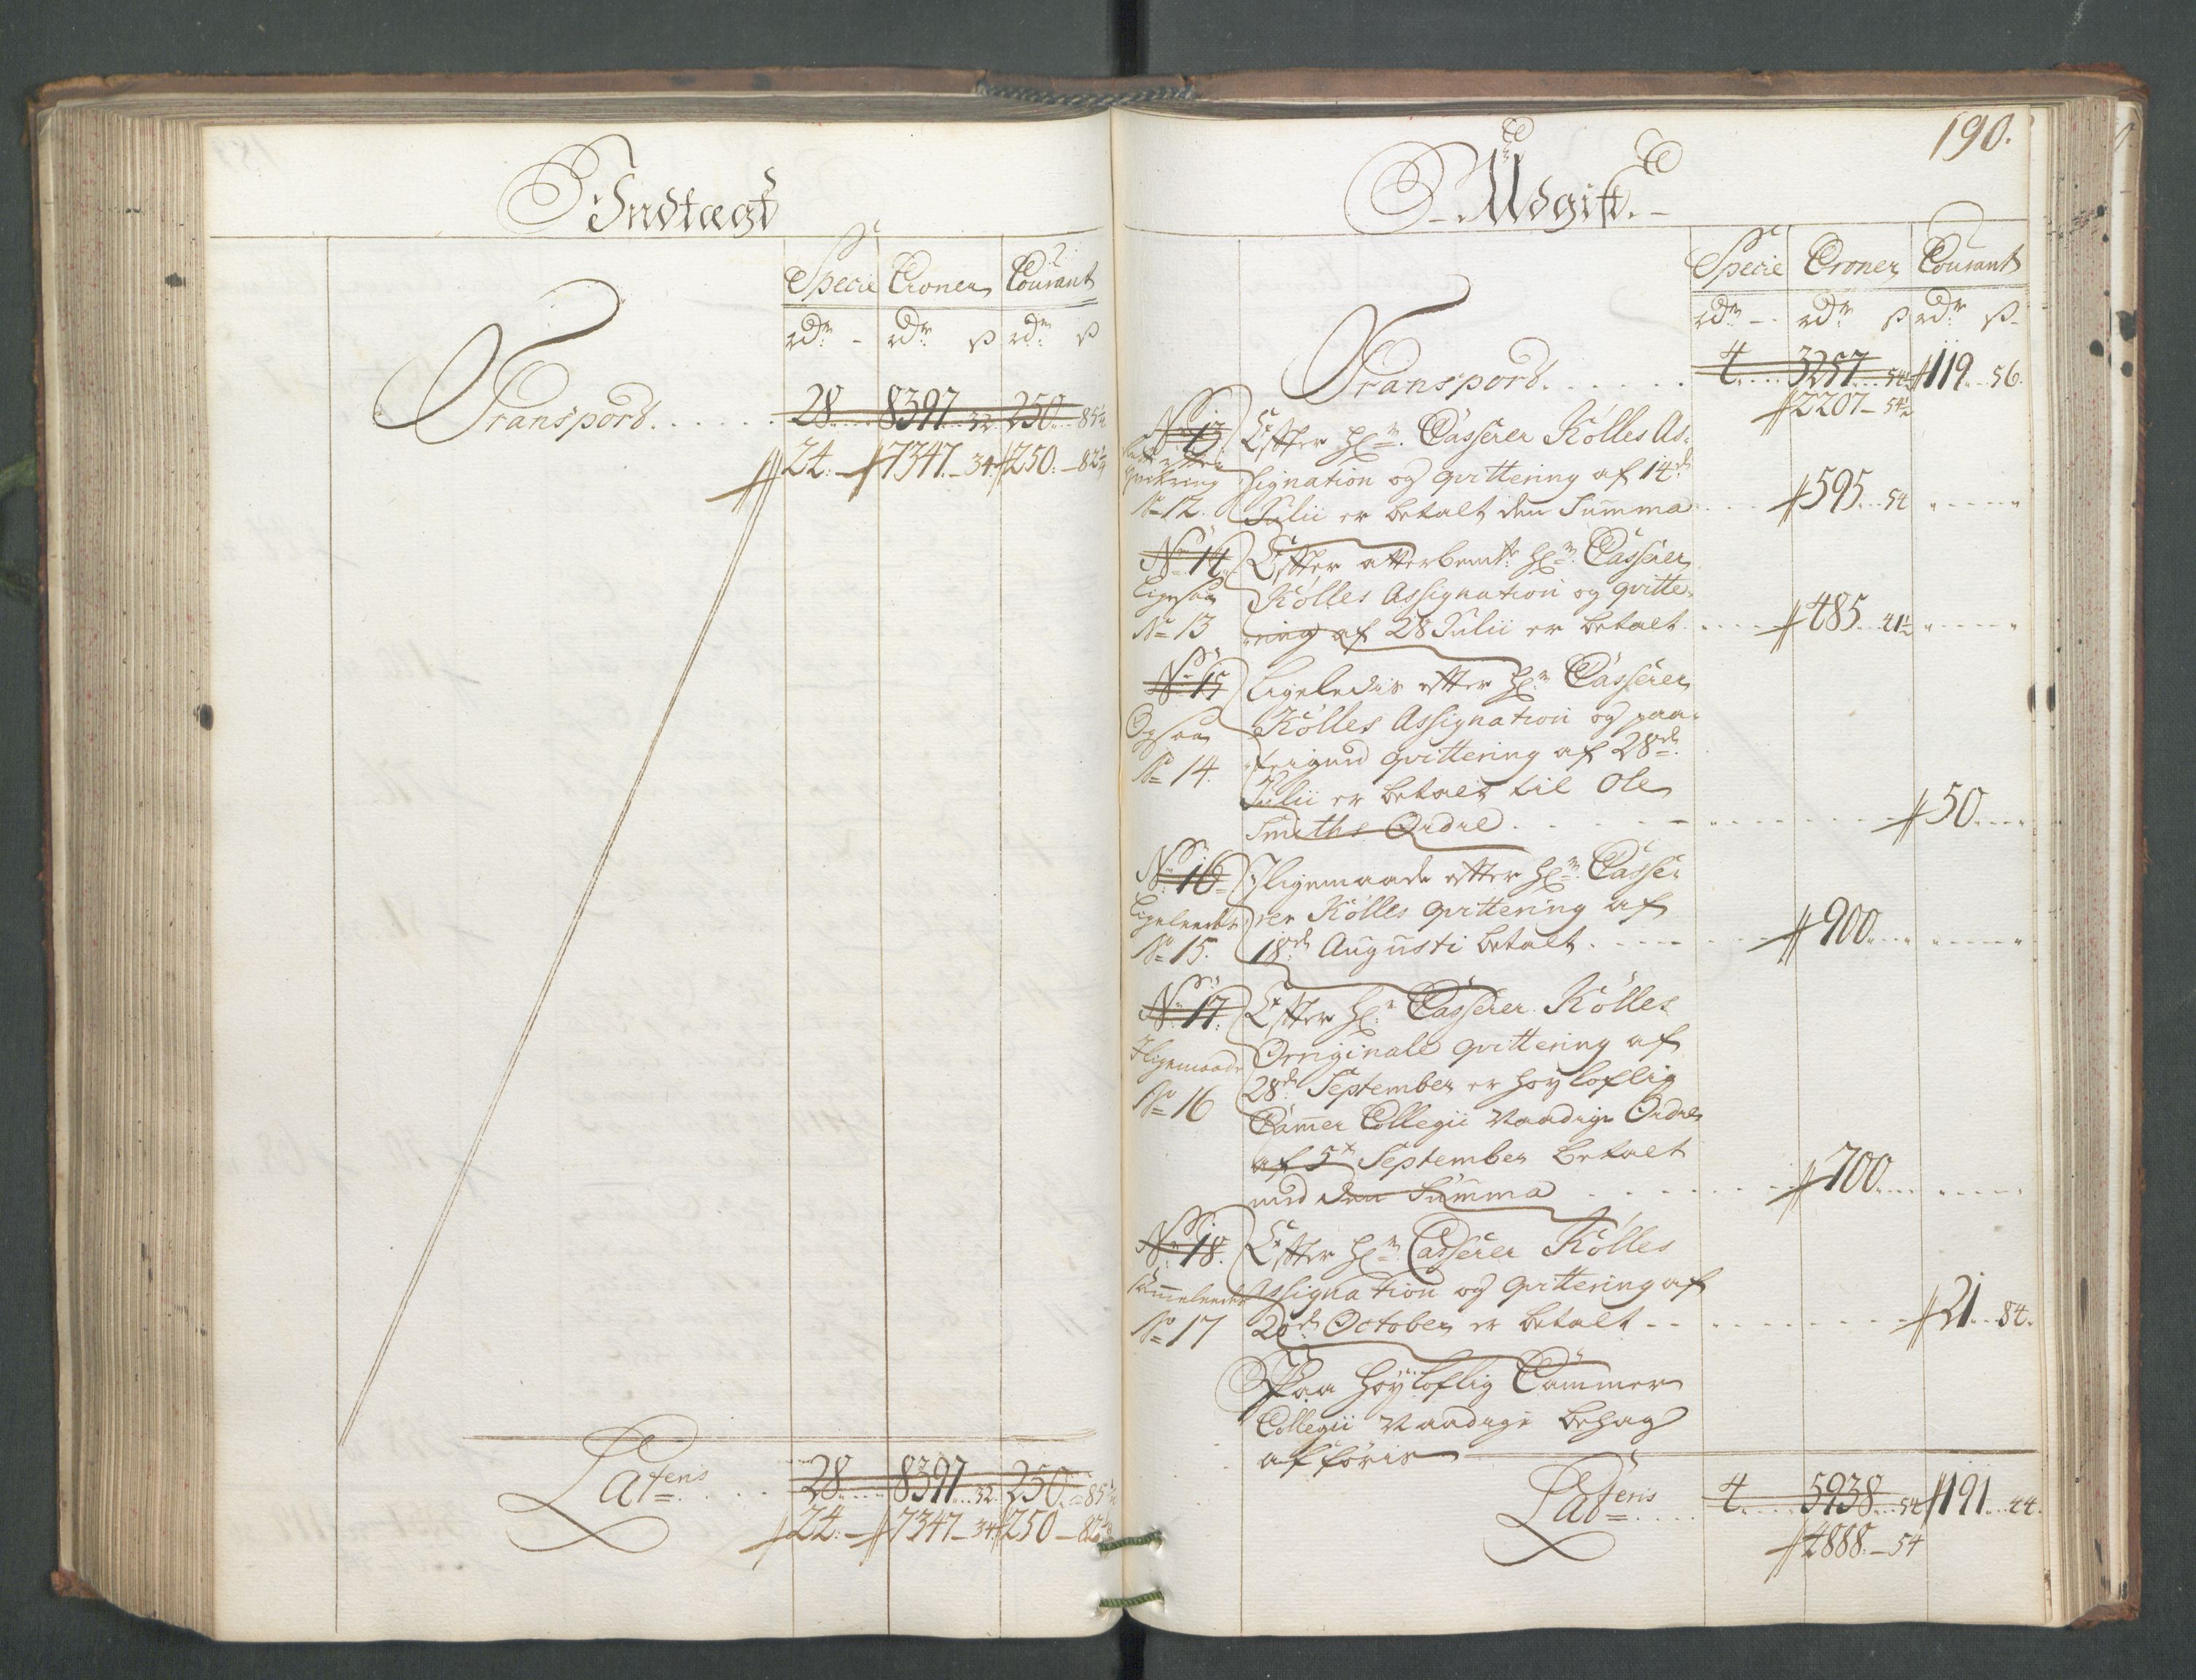 Indtægt
Specie Croner Courant
rdr - rdr ß rdr ß
Transport . . . . . . 28 8397 32 250 85½
24. 7347. 34 250. 82½
Lateris . . . 28 8397 32 250 85½
24. 7347 34 250 82½
190.
Udgift.
Specie Croner Courant
rdr - rdr ß rdr ß
Transport . . . . . . 4 3257 54½ 119 56.
2207 54½
No 13 Efter Hr. Casserer Kölles As-
qvittering signation og qvittering af 14de
No 12. Julii er betalt den Summa 595 54
No 14 Efter atterbemte Hr. Casserer
Ligesaa Kölles Assignation og qvitte-
No 13 ring af 28 Julii er betalt 485 41½
No 15 Ligeledis efter Hr. Casserer
Ogsaa Kölles Assignation og paa-
No 14. teigned qvittering af 28de
Julii er betalt til Ole
Smiths Ordre 50
No 16 Iligemaade efter Hr. Casse-
Ligeleedes rer Kölles qvittering af
No 15. 18de Augusti betalt 900
No 17. Efter Hr. Casserer Kölles
Iligemaade Orriginale qvittering af
No 16 28de September er høyloflig
Camer Collegii Naadige Ordre
af 5te September betalt
med den Summa 700
No 18. Efter Hr. Casserer Kölles
Sammeleedes Assignation og qvittering af
No 17 20de October er betalt 21 84.
Paa Høyloflig Cammer
Collegii Naadige behag
afføris
Lateris 4 5938 54 191 44.
4888. 54